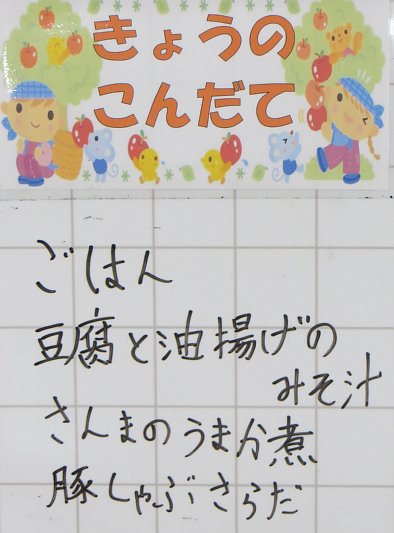 きょうの
こんだて
ごはん
豆腐と油揚げの
みそ汁
さんまのうまか煮
豚しゃぶさらだ